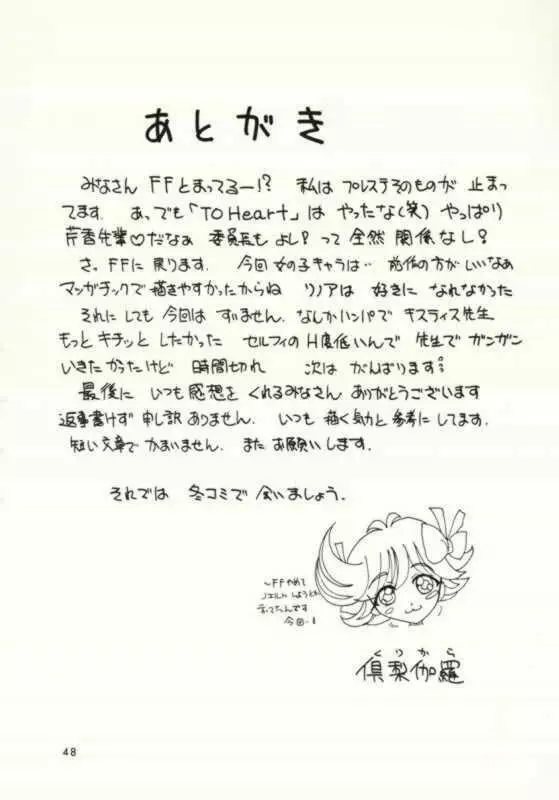 あとがき
みなさん FFとまってるー!? 私は プレステそのものが 止まっ
てます. あっ、でも「TO Heart」は やったな(笑) やっぱり
芹香先輩♡だなぁ 委員長も よし? って 全然 関係なし?
さ。FFに 戻ります. 今回 女の子キャラは… 前作の方が いいなぁ
マンガチックで描きやすかったからね リノアは 好きに なれなかった
それにしても 今回は すいません. なんかハンパで キスティス先生
もっと キチッと したかった セルフィのH度低いんで 先生で ガンガン
いきたかったけど 時間切れ 次は がんばります
最後に いつも 感想を くれるみなさん ありがとうございます
返事書けず 申し訳 ありません. いつも 描く気力と 参考にしてます.
短い文章で かまいません. また お願いします.
それでは 冬コミで 会いましょう.
〜FFやめて
ノエルにしようとか
言ってたんです
今回〜!
くりから
倶梨伽羅
48